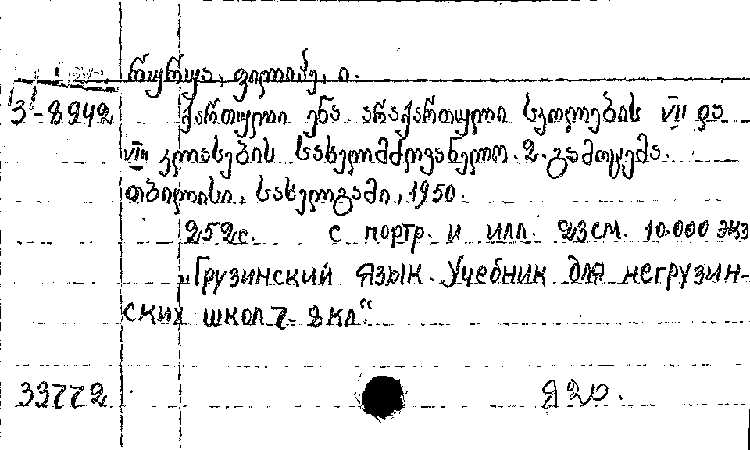 წიწირია, ფილიპე, ი.
3-8242 ქართული ენა არაქართული სკოლების VII და
VIII კლასების სახელმძღვანელო. 2. გამოცემა.
თბილისი, სახელგამი, 1950.
252с. с портр. и илл. 23см. 10.000 экз
„Грузинский язык. Учебник для негрузин-
ских школ 7-8 кл“
33772 820.